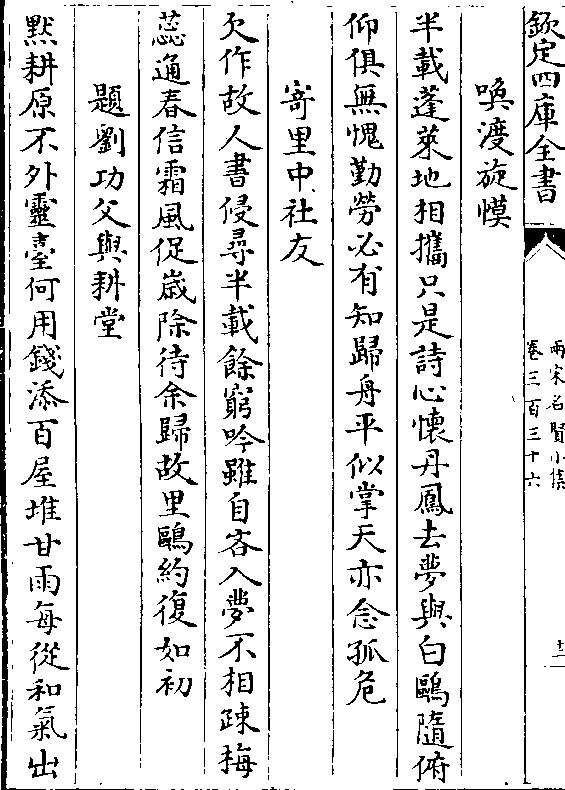 欽定四庫全書
兩宋名賢小集
卷三百三十六
十二
喚渡旋幞
半載蓬萊地相攜只是詩心懷丹鳳去夢與白鷗隨俯
仰俱無愧勤勞必有知歸舟平似掌天亦念孤危
寄里中社友
欠作故人書侵尋半載餘窮吟雖自吝入夢不相疎梅
蕊通春信霜風促歲除待余歸故里鷗約復如初
題劉功父與耕堂
黙耕原不外靈臺何用錢添百屋堆甘雨每從和氣出